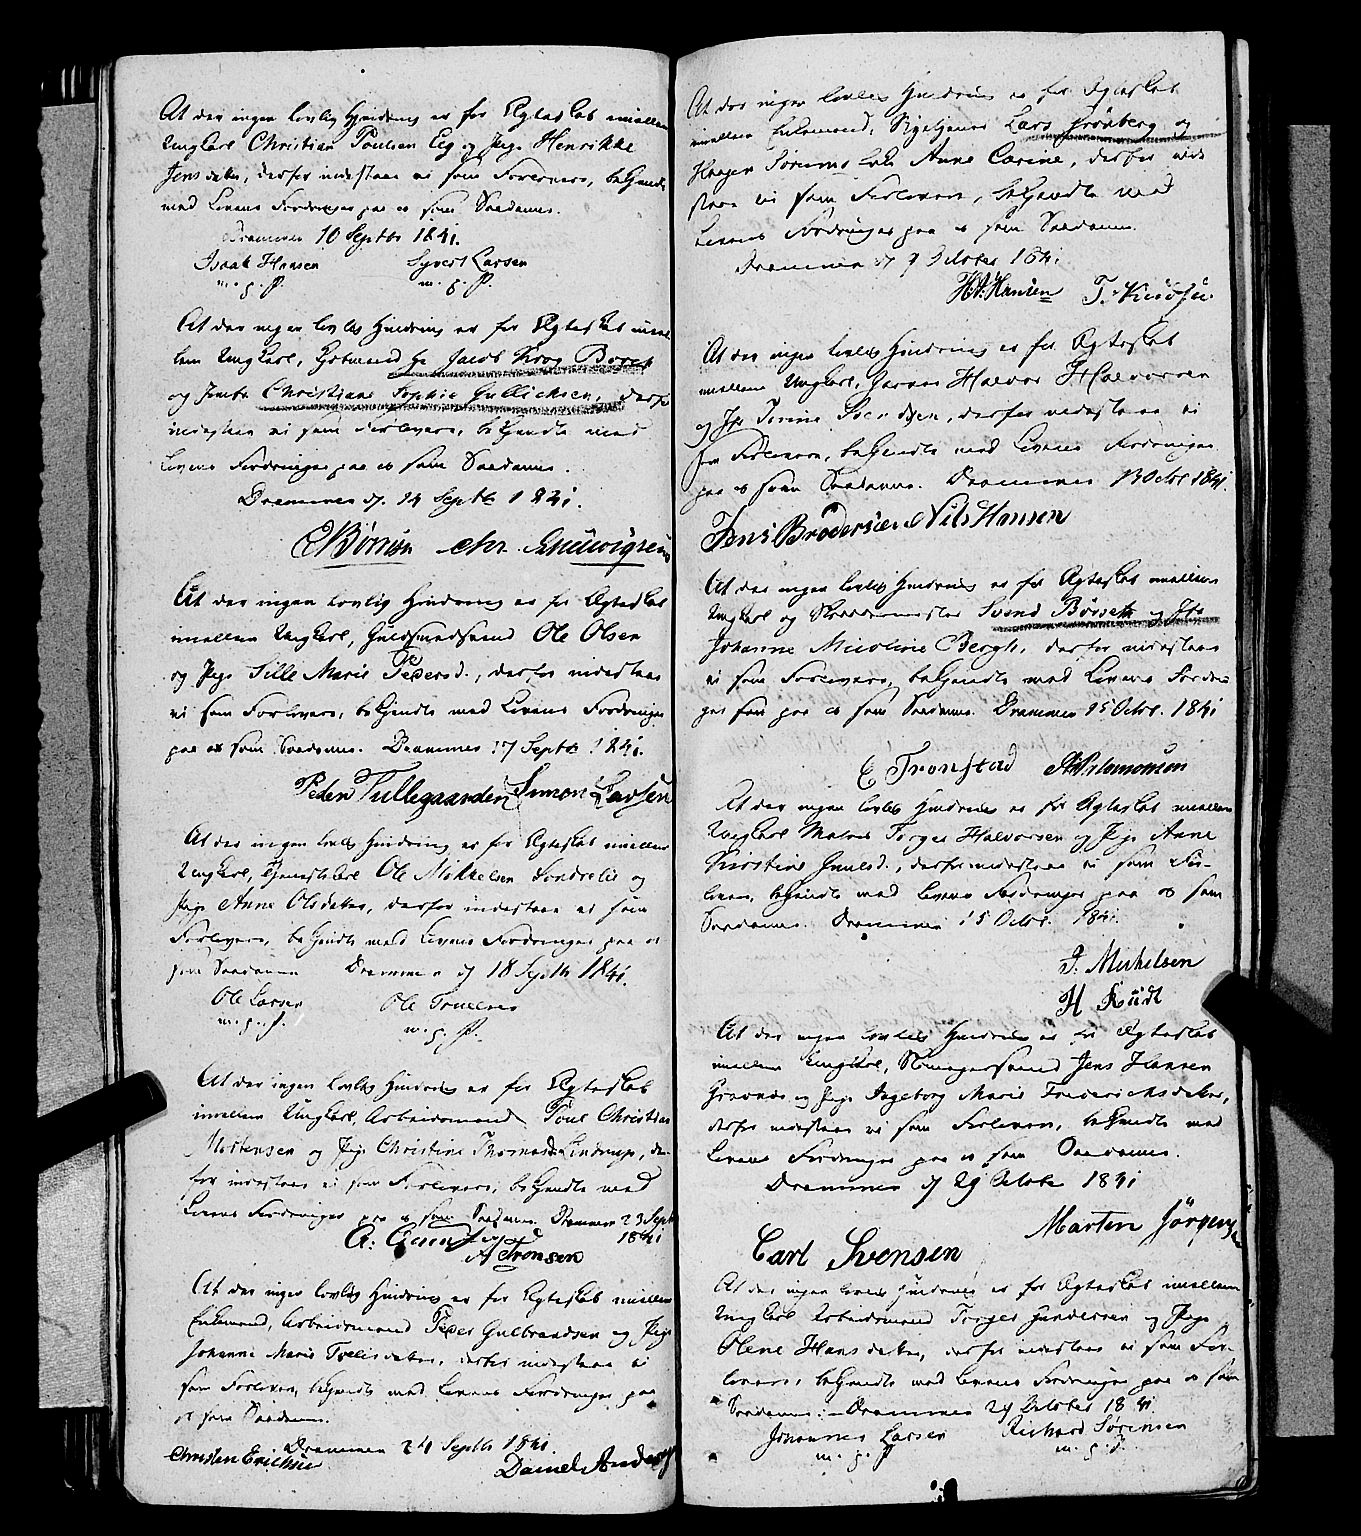 At der ingen lovlig Hindring er for Egteskab imellem
Ungkarl Christian Poulsen Eeg og Pige Henrikke
Jensdatter, derfor indestaae vi som Forlovere, bekjendte
med Lovens Fordringer paa os som Saadanne.
Drammen 10 Septbr 1841.
Isaak Hansen Syvert Larsen
m. p. P. m. p. P.
At der ingen lovlig Hindring er for Egteskab imel
lem Ungkarl, Hr Jacob Krog Borch
og Jomfr Christiane Sophie Gullichsen, derfor
indestaae vi som Forlovere, bekjendte med
Lovens Fordringer paa os som Saadanne.
Drammen d. 14 Septbr 1841.
Chr.
At der ingen lovlig Hindring er for Egteskab
imellem Ungkarl, Guldsmedsvend Ole Olsen
og Pige Sille Marie Pedersd., derfor indestaae
vi som Forlovere, bekjendte med Lovens Fordringer
paa os som Saadanne. Drammen 17 Septbr 1841.
Peder Tullegaarden Simon Larsen
At der ingen lovlig Hindring er for Egteskab imellem
Ungkarl, Tjenestekarl Ole Mikkelsen Sondrelie og
Pige Anne Olsdatter, derfor indestaae vi som
Forlovere, bekjendte med Lovens Fordringer paa os
som Saadanne Drammen d 18 Septbr 1841.
Ole Larsen Ole Truelsen
m. p. P. m. p. P.
At der ingen lovlig Hindring er for Egteskab
imellem Ungkarl, Arbeidsmand Poul Christian
Mortensen og Pige Christine Thomasd. Lindrup, der
for indestaae vi som Forlovere, bekjendte med
Lovens Fordringer paa os som Saadanne. Drammen 23 Septb
1841
A Tronsen
At der ingen lovlig Hindring er for Egteskab imellem
Enkemand, Arbeidsmand Peder Gulbrandsen og Pige
Johanne Marie Tollisdatter, derfor indestaae vi
som Forlovere, bekjendte med Lovens Fordringer paa
os som Saadanne.
Drammen 24 Septbr 1841.
Christen Erichsen Daniel Anders
At der ingen lovlig Hindring er for Egteskab
imellem Enkemand, Lars Frönberg og
Haagen Sörums Enke Anne Carine, derfor inde
staae vi som Forlovere, bekjendte med
Lovens Fordringer paa os som Saadanne.
Drammen d 7 October 1841
H. A. Hansen T. Knudsen
At der ingen lovlig Hindring er for Egteskab
imellem Ungkarl, Halvor Halvorsen
og Pige Svendsen, derfor indestaae vi
som Forlovere, bekjendte med Lovens Fordringer
paa os som Saadanne. Drammen 13 Octbr 1841.
Jens Brodersen Nils Hansen
At der ingen lovlig Hindring er for Egteskab imellem
Ungkarl og Svend Börseth og Pige
Johanne Nicoline Bergh, derfor indestaae
vi som Forlovere, bekjendte med Lovens Fordrin
ger som paa os som Saadanne. Drammen 15 Octbr. 1841
C Tronstad A Salomonsen
At der ingen lovlig Hindring er for Egteskab imellem
Ungkarl Matros Torger Halvorsen og Pige Anne
Kirstine, derfor indestaae vi som For-
lovere, bekjendte med Lovens Fordringer paa os som
Saadanne. Drammen 15 Octbr. 1841.
J. Mikkelsen
H
At der ingen lovlig Hindring er for Egteskab
imellem Ungkarl, Jens Hansen
og Pige Ingeborg Marie Frederichsdatter,
derfor indestaae vi som Forlovere, bekjendte med
Lovens Fordringer paa os som Saadanne.
Drammen d 29 October 1841
Marten Jörgens
Carl Svensen
At der ingen lovlig Hindring er for Egteskab imellem
Ungkarl Arbeidsmand Torger Gundersen og Pige
Olene Hansdatter, derfor indestaae vi som For-
lovere, bekjendte med Lovens Fordringer paa os som
Saadanne. Drammen 29 October 1841.
Johannes Larsen Richard Sörensen
m. p. P. m. p. P.